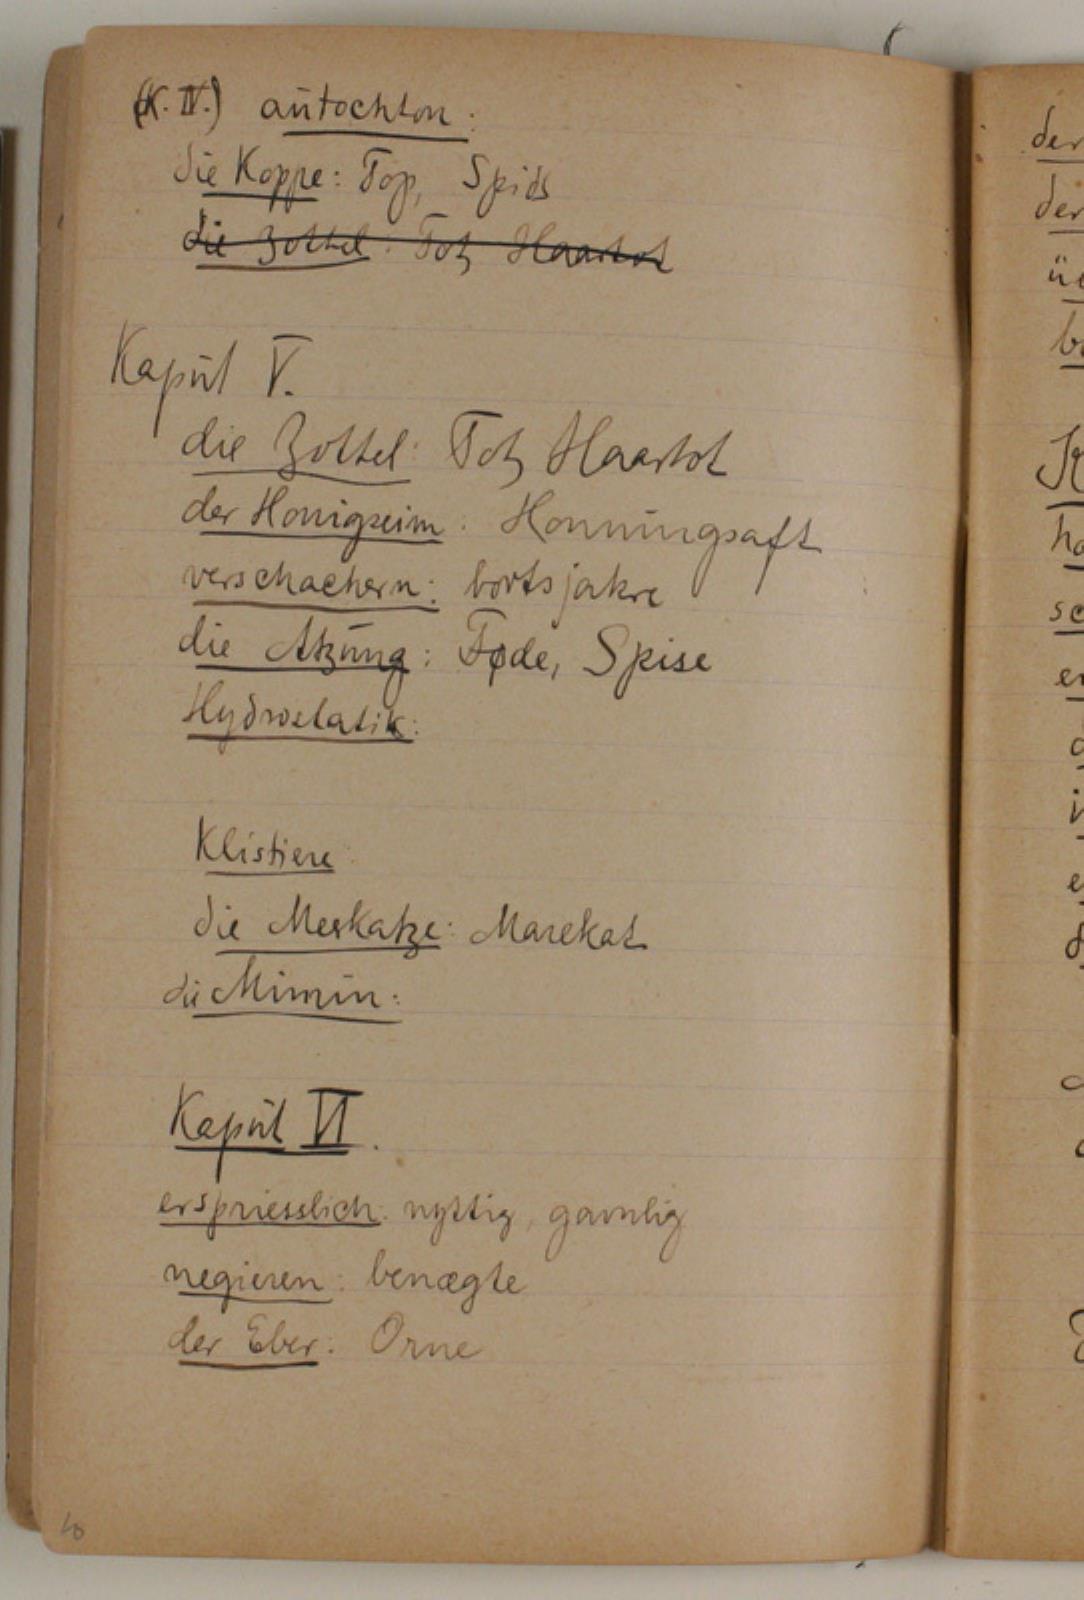 (K. IV.) autochton:
die Koppe: Top, Spids
die Zottel: Tot, Haartot
Kapul V.
die Zottel: Tot, Haartot
der Honigseim: Honningsaft
verschachern: bortsjakre
die Atzung: Føde, Spise
Hydrostatik:
Klistiere
die Merkatze: Marekat
die Mimin:
Kapul VI.
erspriesslich: nyttig, gavnlig
negieren: benægte
der Eber: Orne
10
der
der